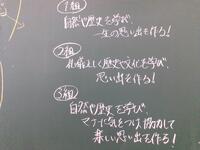 1組
自然や歴史を学び、
一生の思い出を作ろう!
2組
礼儀正しく歴史や文化を学び、
思い出を作ろう!
3組
自然や歴史を学び、
マナーに気をつけ協力して
楽しい思い出を作ろう!